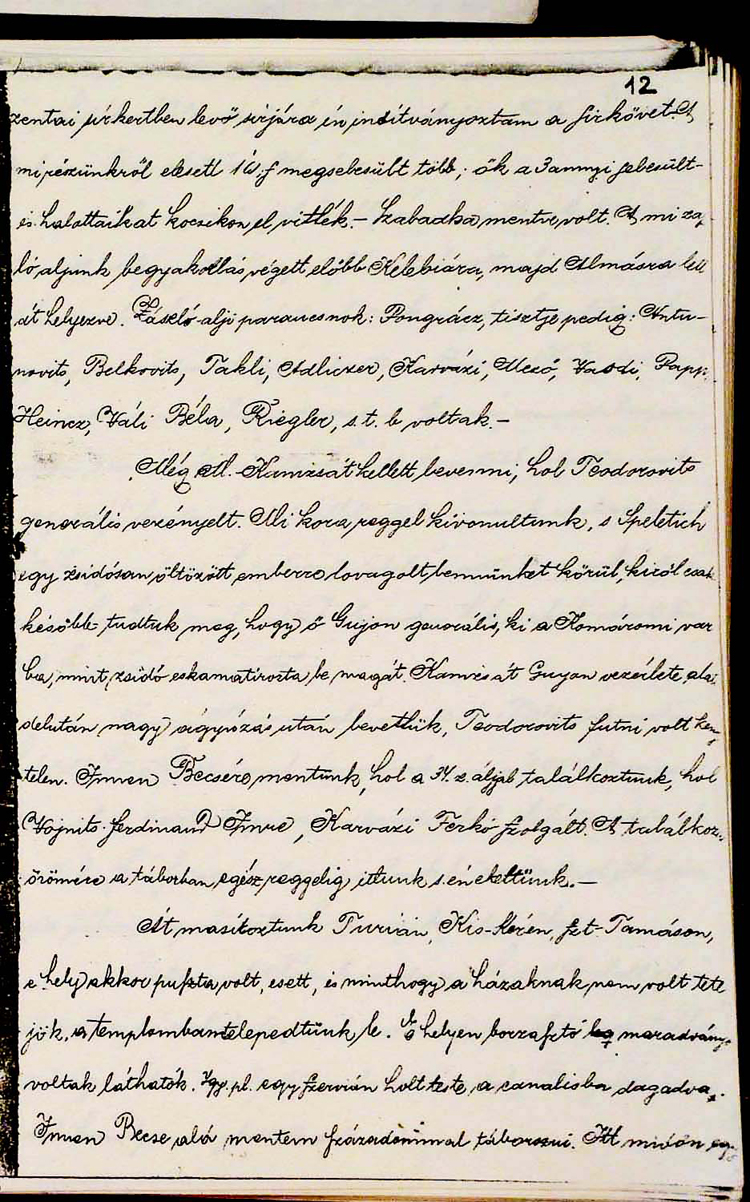 12
zentai sírkertben levő sírjára én indítványoztam a sirkövet. A
mi részünkről elesett 16, s megsebesült több; ők a 3 annyi sebesült-
és halottaikat kocsikon el vitték. — Szabadka mentve volt. A mi zá-
ló aljunk begyakorlás végett előbb Kelebiára, majd Almásra lett
át helyezve. Zászló-alji parancsnok: Pongrácz, tisztje pedig: Antu-
novits, Belkovits, Takli, Adliczer, Karvázi, Mező, Vasdi, Papp,
Heincz, Váli Béla, Riegler, s. t. b. voltak. —
Még M.-Kanizsát kellett bevenni, hol Teodorovits
generális vezényelt. Mi kora reggel kivonultunk, s Speletich
egy zsidósan öltözött emberre lovagolt bennünket körül, kiről csak
később tudtuk meg, hogy ő Gujon generális, ki a Komáromi vár
ba, mint zsidó eskamatirozta be magát. Kanizsát Guyon vezérlete ala
délután nagy ágyúzás után bevettük, Teodorovits futni volt kén
telen. Innen Becsére mentünk, hol a 34. z. aljjal találkoztunk, hol
Vojnits ferdinand Imre, Karvázi Ferkó szolgált. A találkoz.
örömére a táborban egész reggelig ittunk s énekeltünk. —
Át masíroztunk Turián, Kis-Kéren, szt-Tamáson,
e hely akkor puszta volt, esett, és minthogy a házaknak nem volt tete
jök, a templomban telepedtünk le. E helyen borzasztó maradvány
voltak láthatók. Igy pl. egy szervián holt teste a canalisba dagadva.
Innen Becse alá mentem századommal táborozni. Itt midőn eg